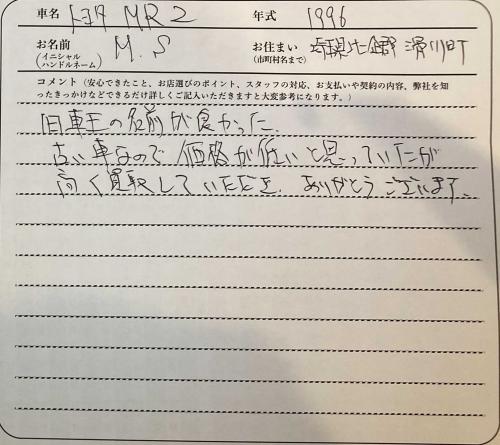 車名 トヨタ MR2 年式 1996
お名前 M.S お住まい 埼玉県比企郡滑川町
(イニシャル (市町村名まで)
ハンドルネーム)
コメント(安心できたこと、お店選びのポイント、スタッフの対応、お支払いや契約の内容、弊社を知
ったきっかけなどできるだけ詳しくご記入いただきますと大変参考になります。)
旧車王の名前が良かった.
古い車なので価格が低いと思っていたが
高く買取していただき、ありがとうございます.